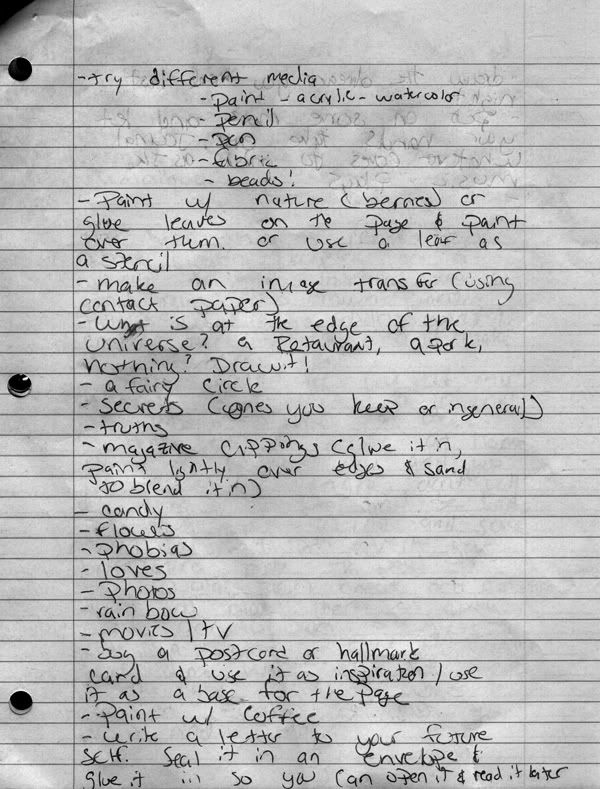 -try different media
-paint -acrylic -watercolor
-pencil
-pen
-fabric
- beads!
-Paint w/ nature (berries) or
glue leaves on the page & paint
over them. or use a leaf as
a stencil
-make an image transfer (using
contact paper)
-What is at the edge of the
universe? a Retaurant, a park,
nothing? Draw it!
- a fairy circle
- Secrets (ones you keep or in general)
-truths
- magazine clippings (glue it in,
paint lightly over edges & sand
to blend it in)
- candy
-flowers
-phobias
-loves
-Photos
-rainbow
-movies / TV
-buy a postcard or hallmark
card & use it as inspiration / use
it as a base for the page
-Paint w/ Coffee
-write a letter to your future
self. Seal it in an envelope &
glue it in so you can open it & read it later